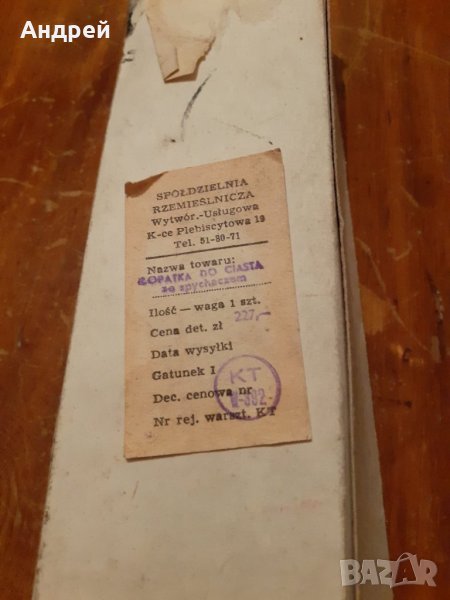 Андрей
SPÓŁDZIELNIA
RZEMIEŚLNICZA
Wytwór.-Usługowa
K-ce Plebiscytowa 19
Tel. 51-80-71
Nazwa towaru:
ŁOPATKA DO CIASTA
ze spychaczem
Ilość — waga 1 szt.
Cena det. zł 227,-
Data wysyłki
Gatunek I
Dec. cenowa nr
Nr rej. warszt. KT
KT
BAZAR